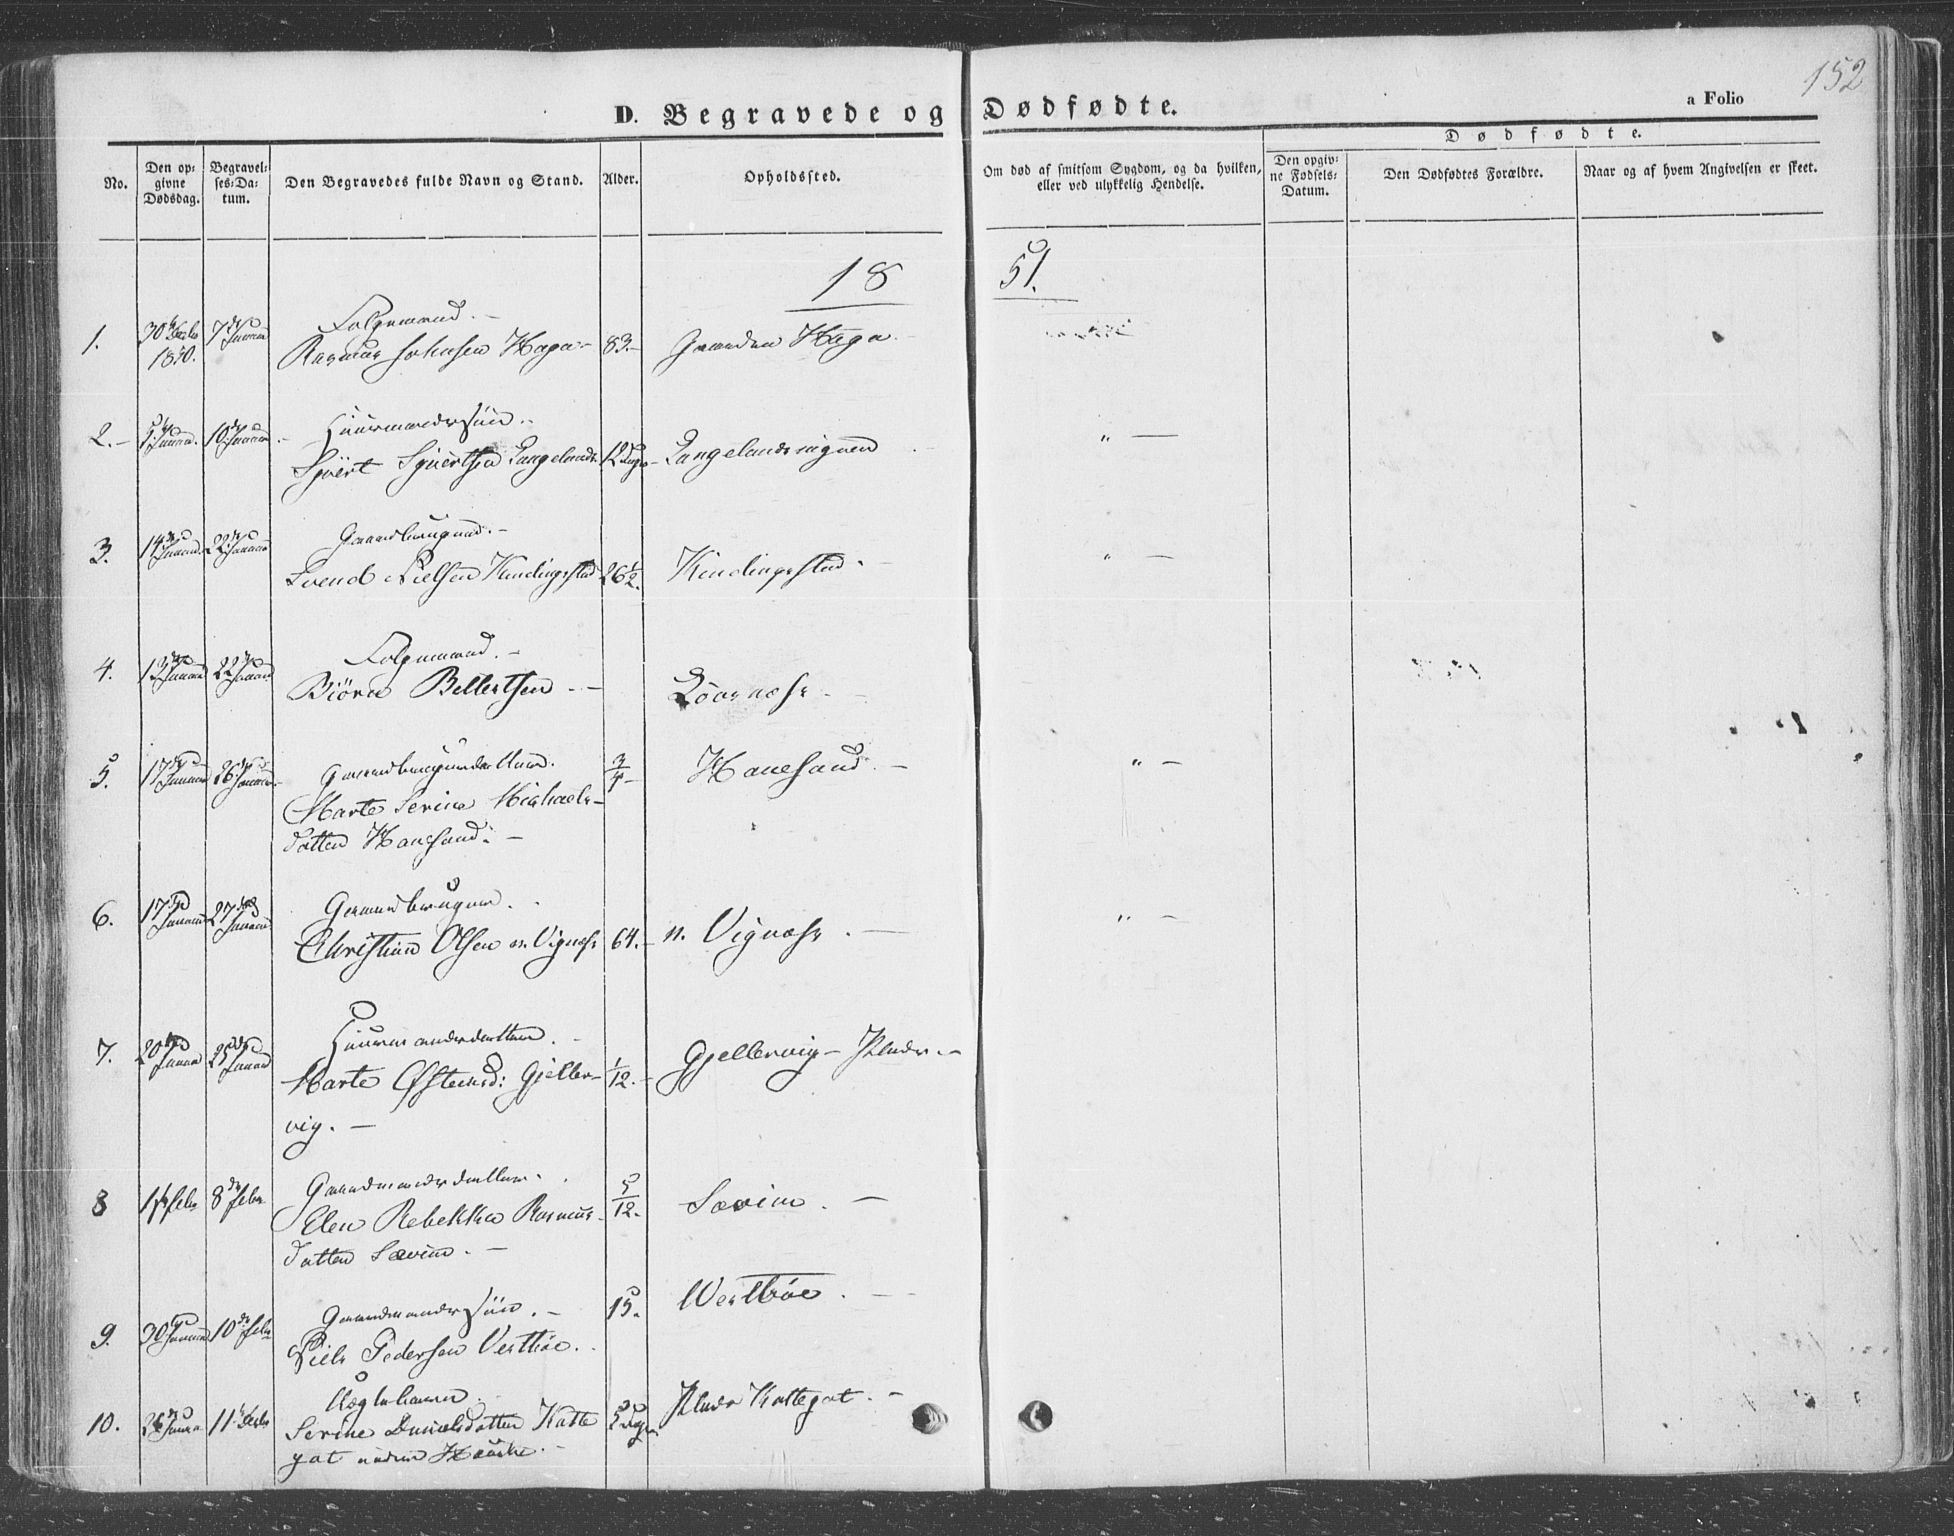 152
D. Begravede og Dødfødte.
a Folio
No.
Den opgivne Dødsdag.
Begravelses-Datum.
Den Begravedes fulde Navn og Stand.
Alder.
Opholdssted.
Om død af smitsom Sygdom, og da hvilken, eller ved ulykkelig Hendelse.
Dødfødte.
Den opgivne Fødsels-Datum.
Den Dødfødtes Forældre.
Naar og af hvem Angivelsen er skeet.
1851.
1. 30 1850. 7de Januar
Folgemand.
Rasmus Johnsen Haga 83. Gaarden Haga
2. 5 Januar. 10de Januar
Huusmandssøn.
Sjvert Sjvertsen Langelands 12 Dage Langelands " —
3. 14de Januar 22de Januar
Gaardbruger.
Svend Nielsen Kindingstad 26½. Kindingstad " —
4. 13de Januar 22de Januar
Folgemand.
Biörn Bellertsen
5. 17de Januar 26de Januar
Gaardbrugerdatter. 3/4 Hanesand. " —
Marte Serine Michaels-
datter Hanesand.
6. 17de Januar 27de Januar
Gaardbruger.
Christian Olsen n. Vignæss 64. n. Vignæss " —
7. 20de Januar 25de Januar
Huusmandsdatter.
Marte Østensd: Gjeller- 1/12. Gjellervig
vig.
8 1ste Febr 8de Febr
Gaardmandsdatter.
Elen Rebekka Rasmus- 5/12. Sævim
datter Sævim.
9. 30 Januar 10de Febr
Gaardmandssøn. 15. Westbøe
Niels Pedersen Vestbøe.
10. Januar 11 Febr
Serine Danielsdatter Katte Dage Kattegat.
gat